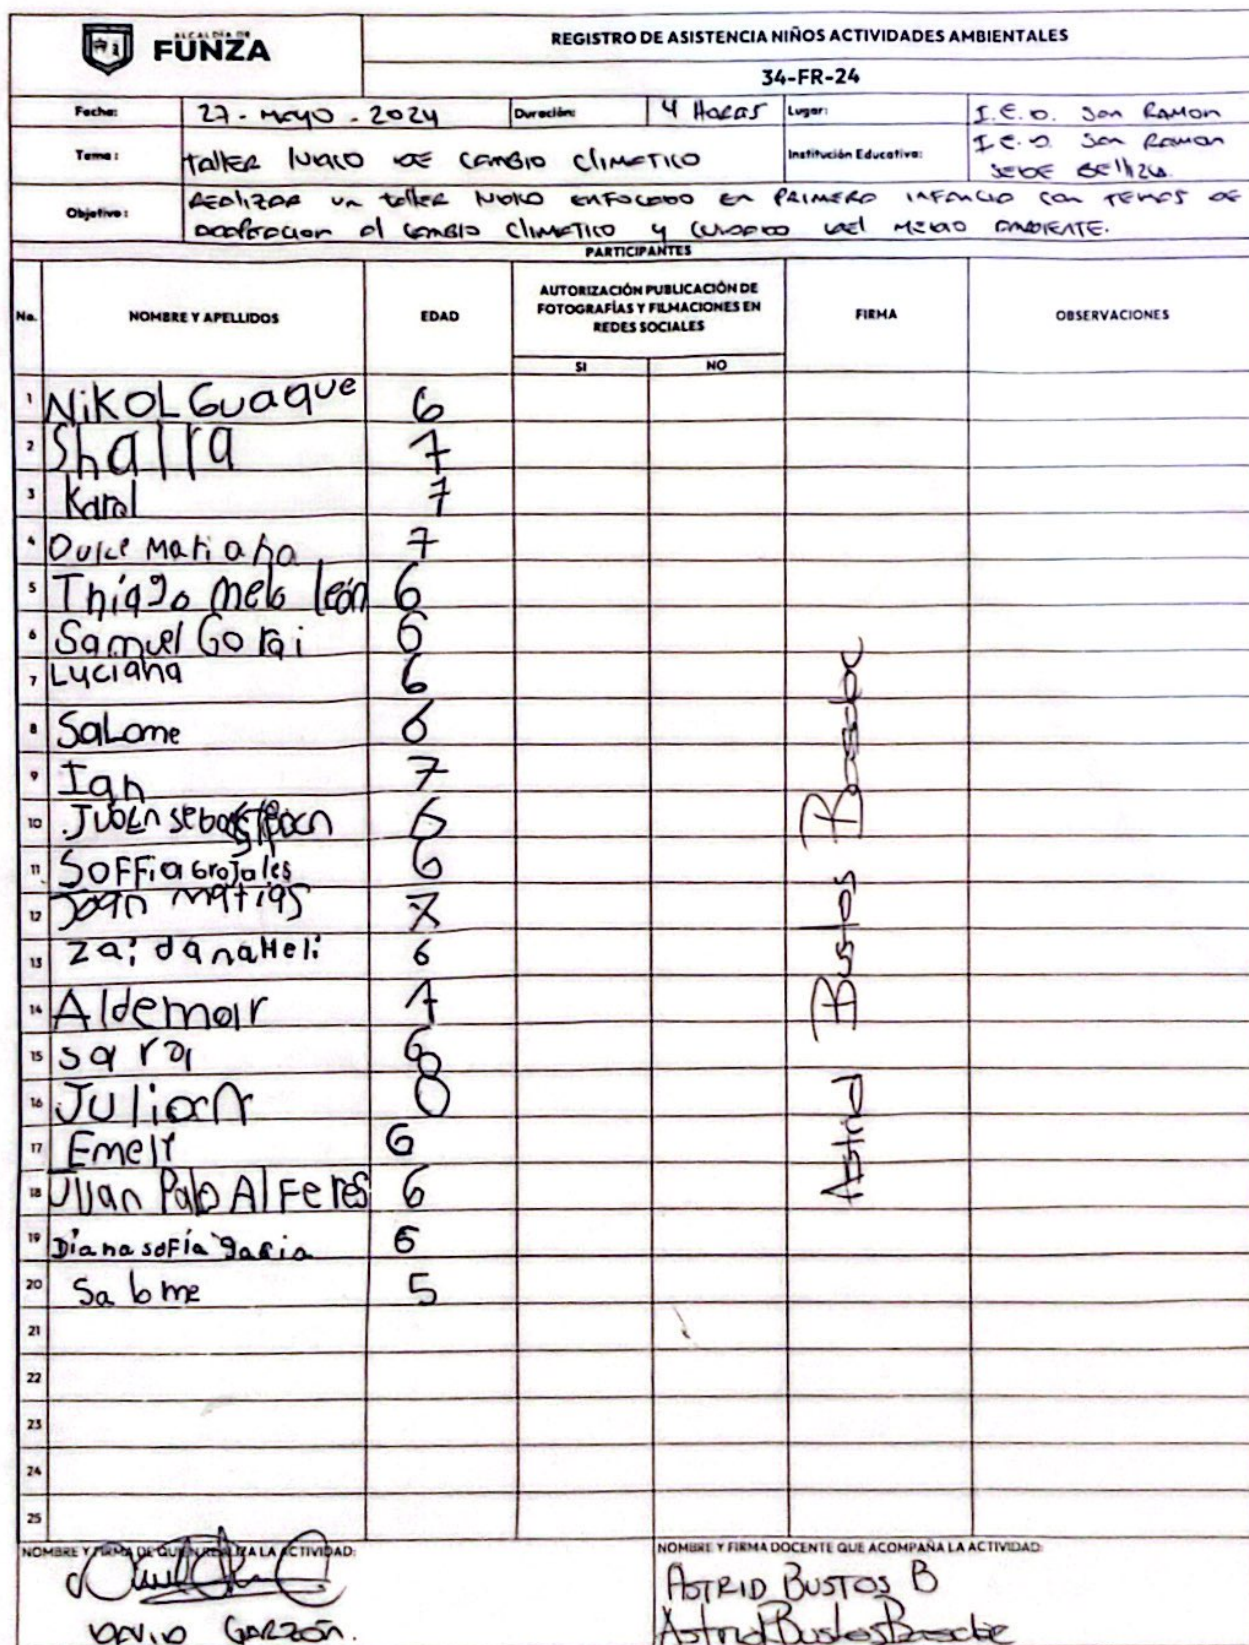 ALCALDÍA DE
FUNZA
REGISTRO DE ASISTENCIA NIÑOS ACTIVIDADES AMBIENTALES
34-FR-24
Fecha: 27 - mayo - 2024 Duración: 4 Horas Lugar: I.E.O. San Ramon
Tema: Taller de cambio climatico Institución Educativa: I.E.O. San Ramon
SEDE
Objetivo: REALIZAR un taller enfocado en primera infancia con temas de
al cambio climatico y cuidado del medio ambiente.
PARTICIPANTES
No. NOMBRE Y APELLIDOS EDAD AUTORIZACIÓN PUBLICACIÓN DE FOTOGRAFÍAS Y FILMACIONES EN REDES SOCIALES FIRMA OBSERVACIONES
SI NO
1 NiKOL Guaque 6
2 Shaira 7
3 Karol 7
4 Dulce Mariana 7
5 Thiago melo león 6
6 Samuel 6
7 Luciana 6
8 Salome 6
9 Ian 7
10 Juan sebastian 6
11 SOFFia Grojales 6
12 Joan matias 7
13 zai danaHeli 6
14 Aldemar 7
15 sara 6
16 Julian
17 Emely 6
18 Juan Pablo AlFeres 6
19 Diana soFía garia 6
20 Salome 5
21
22
23
24
25
Astrid Bustos
NOMBRE Y FIRMA DE QUIEN REALIZA LA ACTIVIDAD:
DAVID GARZÓN.
NOMBRE Y FIRMA DOCENTE QUE ACOMPAÑA LA ACTIVIDAD:
ASTRID BUSTOS B
Astrid Bustos